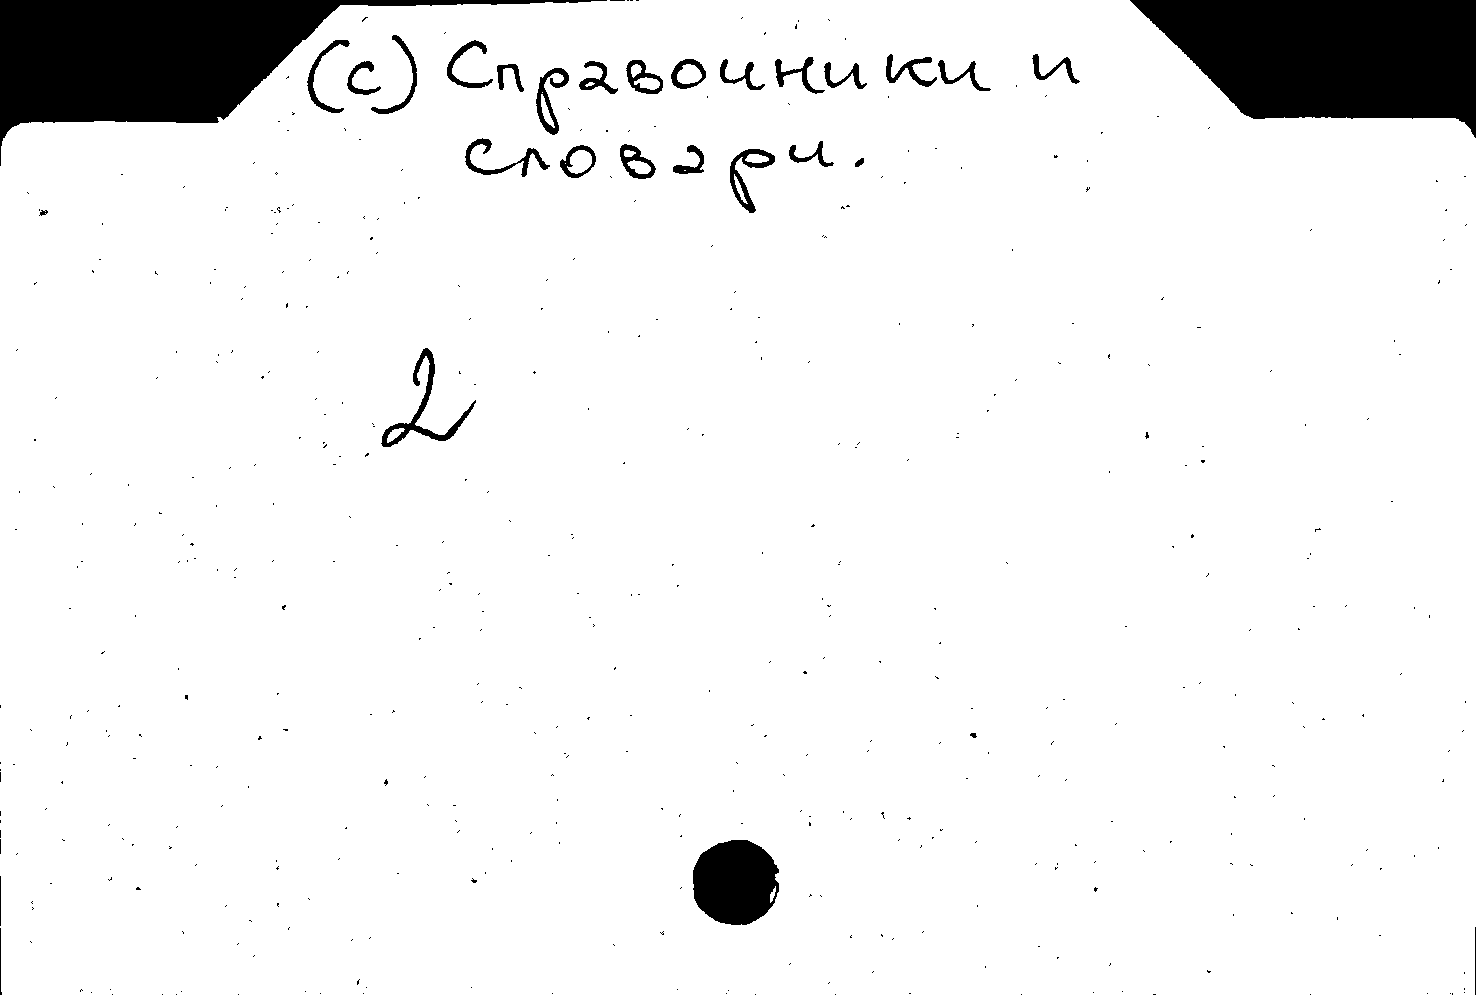 (с) Справочники и
словари.
2